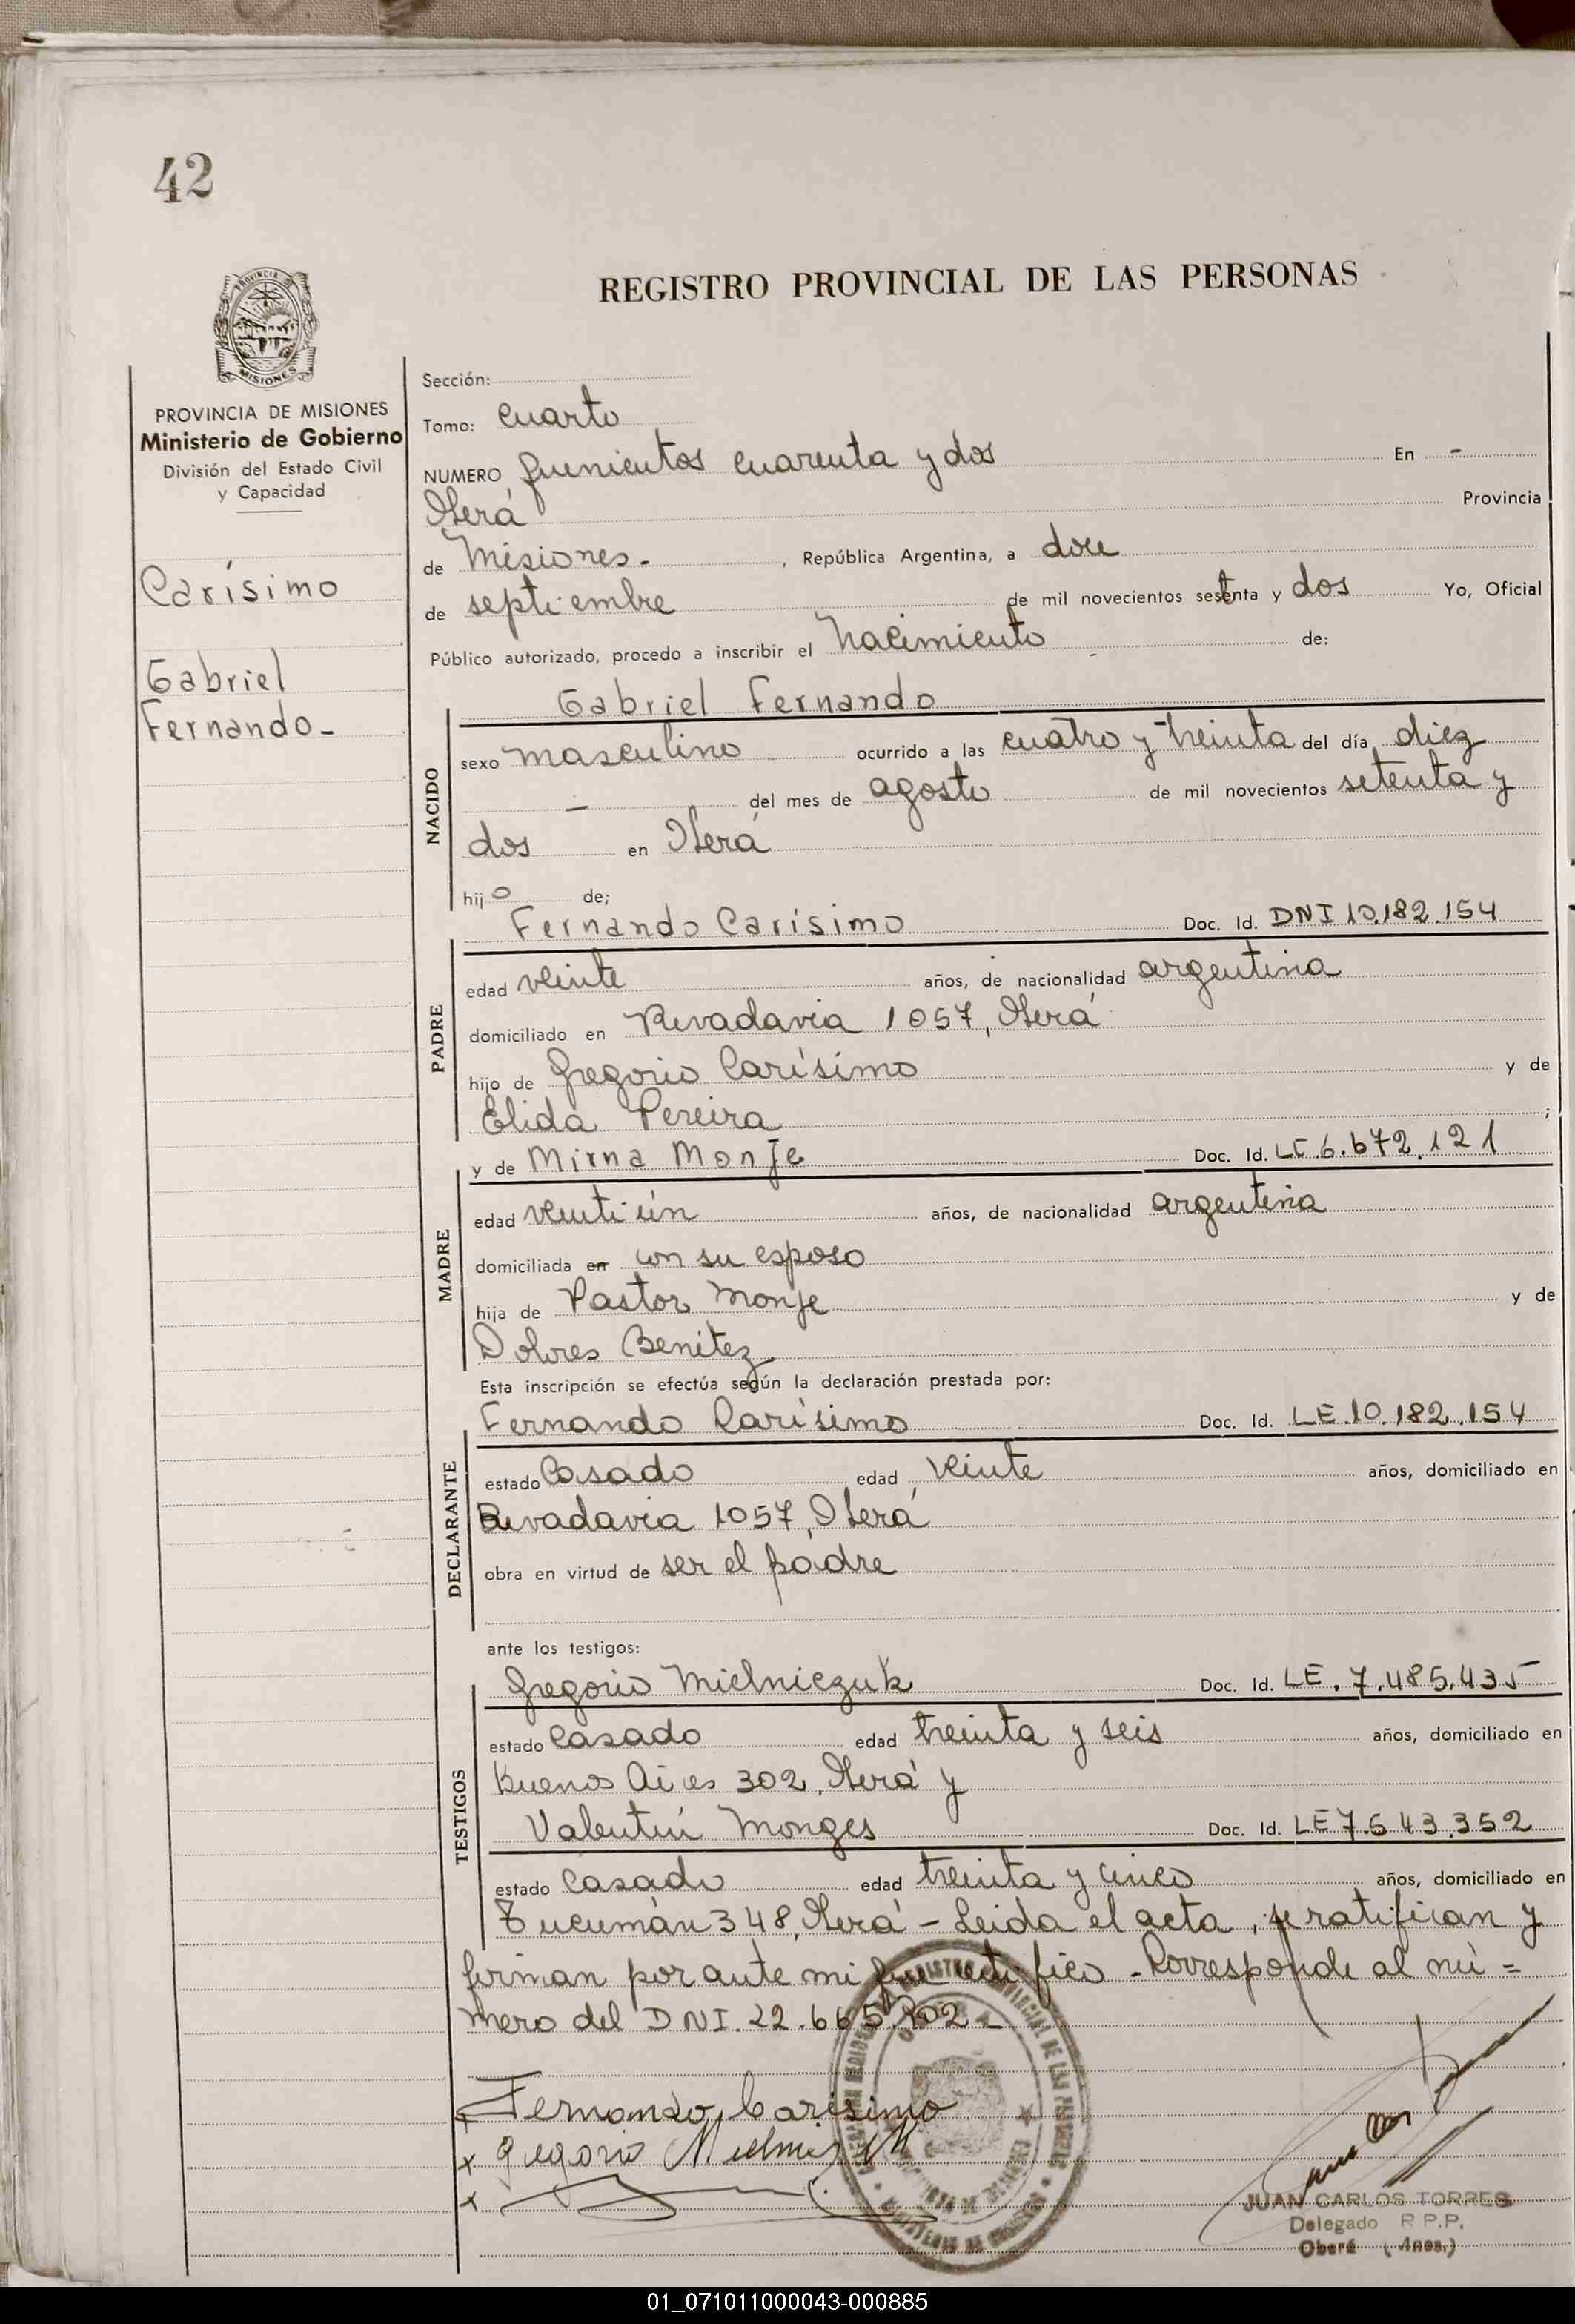 42
PROVINCIA
MISIONES
PROVINCIA DE MISIONES
Ministerio de Gobierno
División del Estado Civil
y Capacidad
Carísimo
Gabriel
Fernando-
REGISTRO PROVINCIAL DE LAS PERSONAS
Sección:
Tomo: cuarto
NUMERO quinientos cuarenta y dos En -
Oberá Provincia
de Misiones- , República Argentina, a doce
de septiembre de mil novecientos setenta y dos Yo, Oficial
Público autorizado, procedo a inscribir el nacimiento - de:
Gabriel Fernando
NACIDO
sexo masculino ocurrido a las cuatro y treinta del día diez
- del mes de agosto de mil novecientos setenta y
dos en Oberá
hijo de;
Fernando Carísimo Doc. Id. DNI 10.182.154
PADRE
edad veinte años, de nacionalidad argentina
domiciliado en Rivadavia 1057, Oberá
hijo de Gregorio Carísimo y de
Elida Pereira ;
y de Mirna Monje Doc. Id. LC 6.672.121
MADRE
edad veintiún años, de nacionalidad argentina
domiciliada en con su esposo
hija de Pastor Monje y de
Dolores Benítez
Esta inscripción se efectúa según la declaración prestada por:
Fernando Carísimo Doc. Id. LE.10.182.154
DECLARANTE
estado casado edad veinte años, domiciliado en
Rivadavia 1057, Oberá
obra en virtud de ser el padre
ante los testigos:
Gregorio Mielniczuk Doc. Id. LE. 7.485.435
TESTIGOS
estado casado edad treinta y seis años, domiciliado en
Buenos Aires 302, Oberá y
Valentín Monges Doc. Id. LE 7.543.352
estado casado edad treinta y cinco años, domiciliado en
Tucumán 348, Oberá - Leida el acta, se ratifican y
firman por ante mi que certifico - Corresponde al nú=
mero del DNI. 22.665.902-
Fernando Carísimo
x Gregorio Mielniczuk
x
JUAN CARLOS TORRES
Delegado R.P.P.
Oberá (Mnes.)
01_071011000043-000885